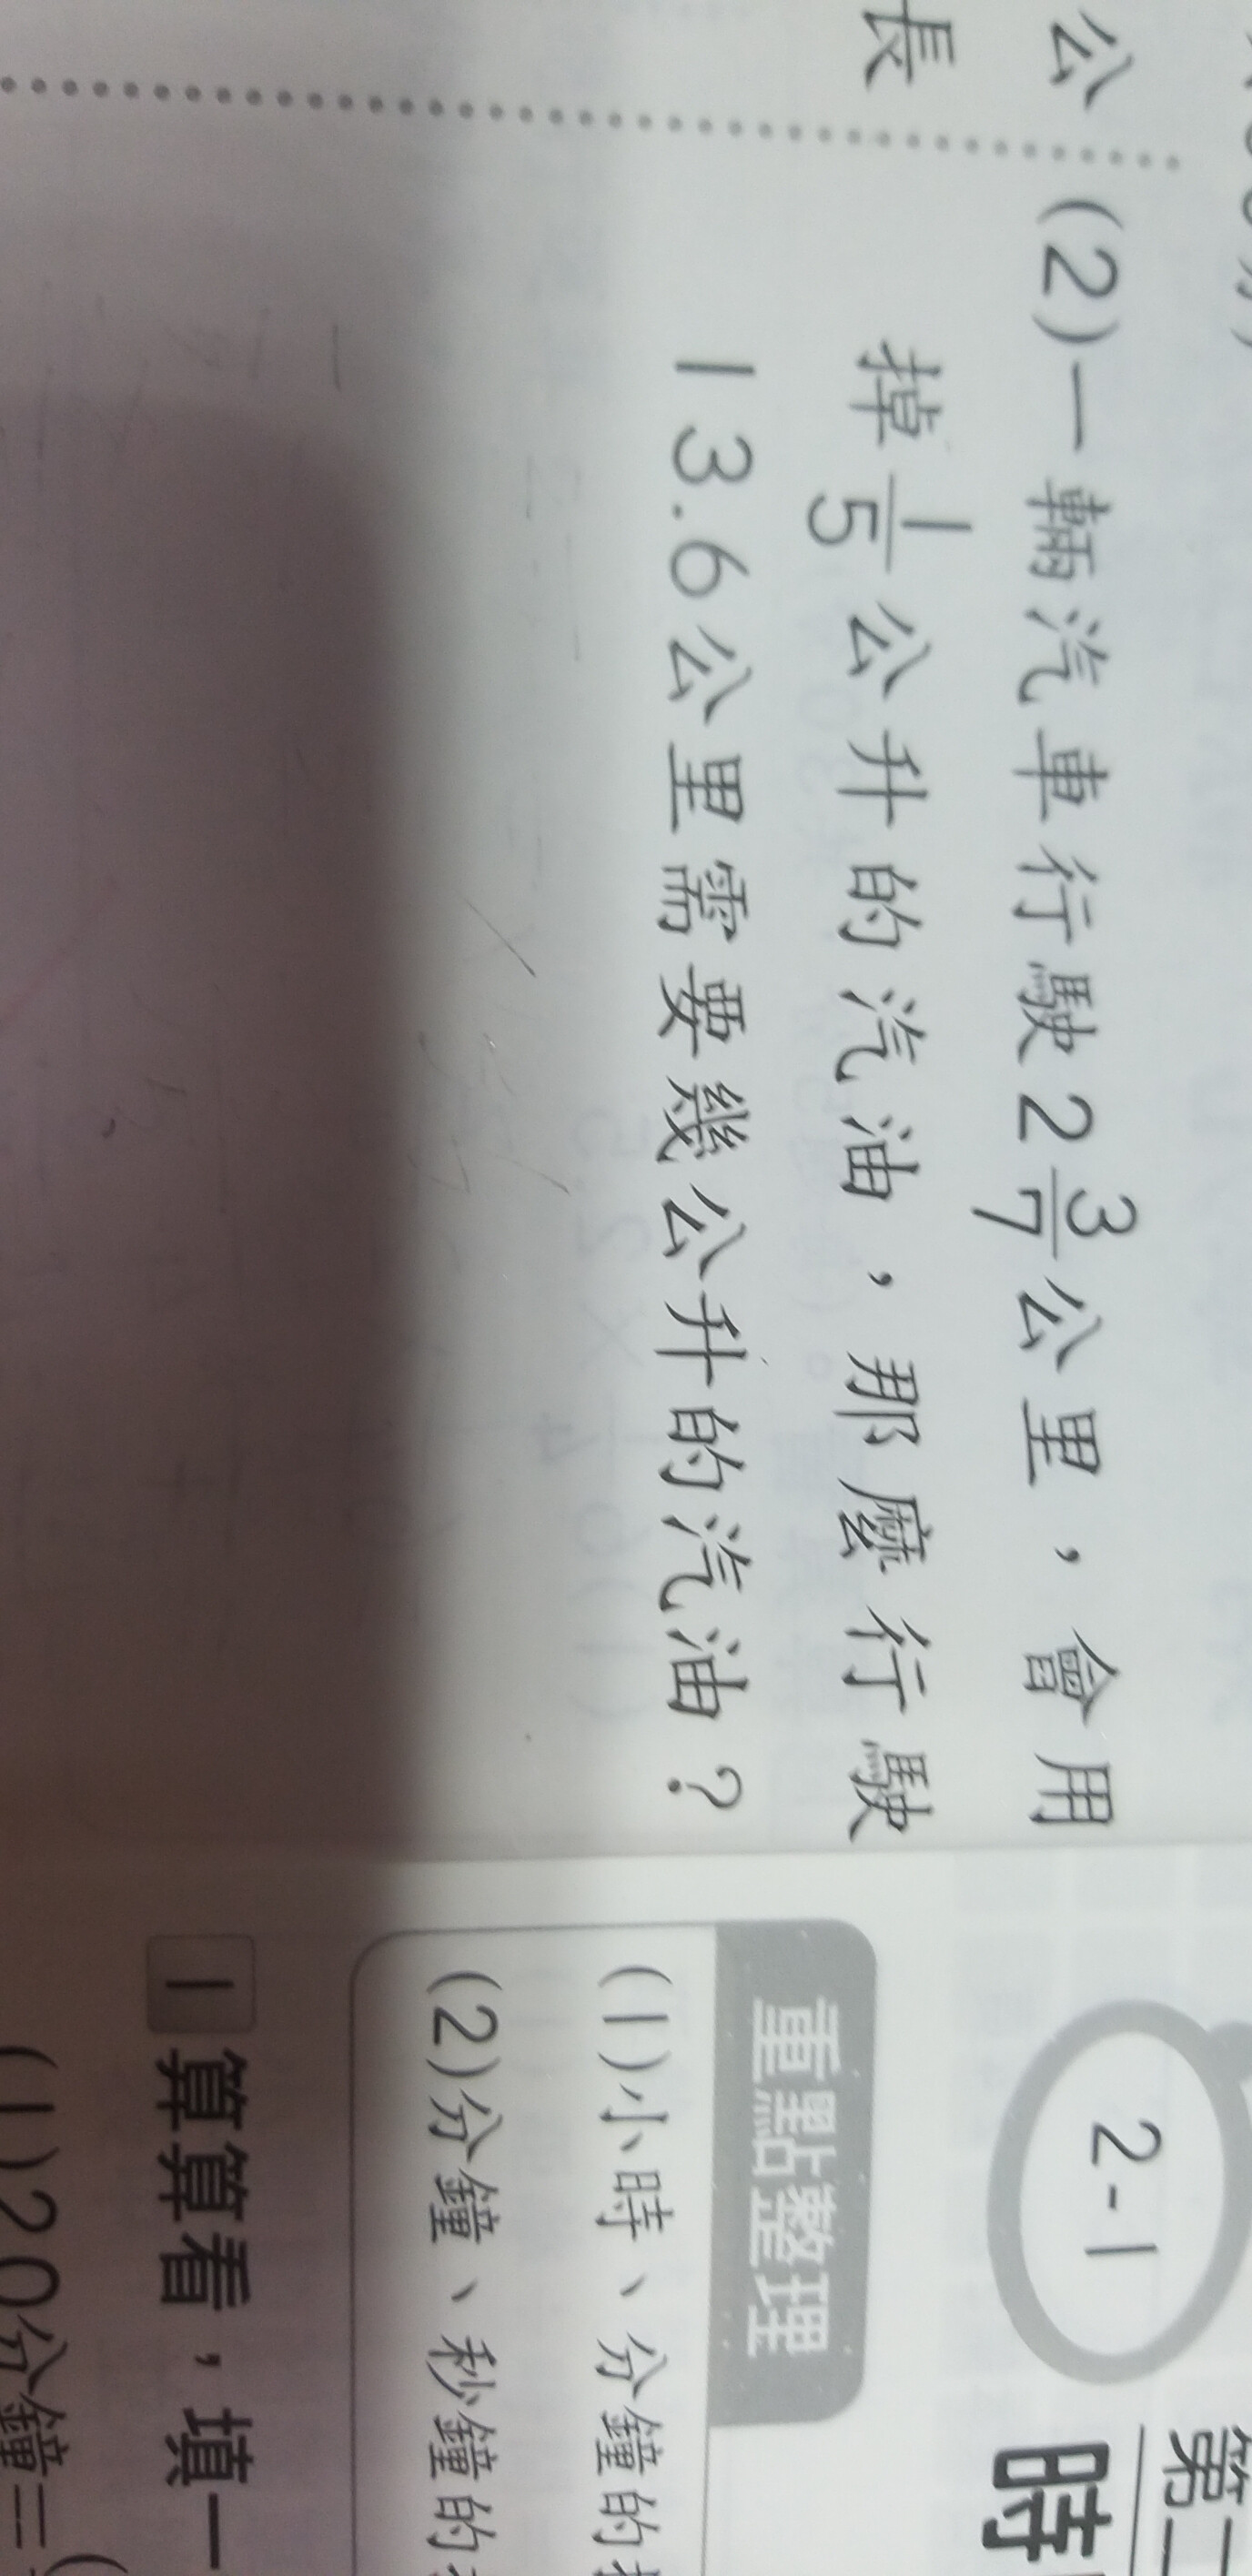 公
長
(2)一輛汽車行駛2 3/7 公里，會用
掉 1/5 公升的汽油，那麼行駛
13.6公里需要幾公升的汽油？
2-1
第二
時
重點整理
(1)小時、分鐘的
(2)分鐘、秒鐘的
1 算算看，填一
(1)20分鐘＝(